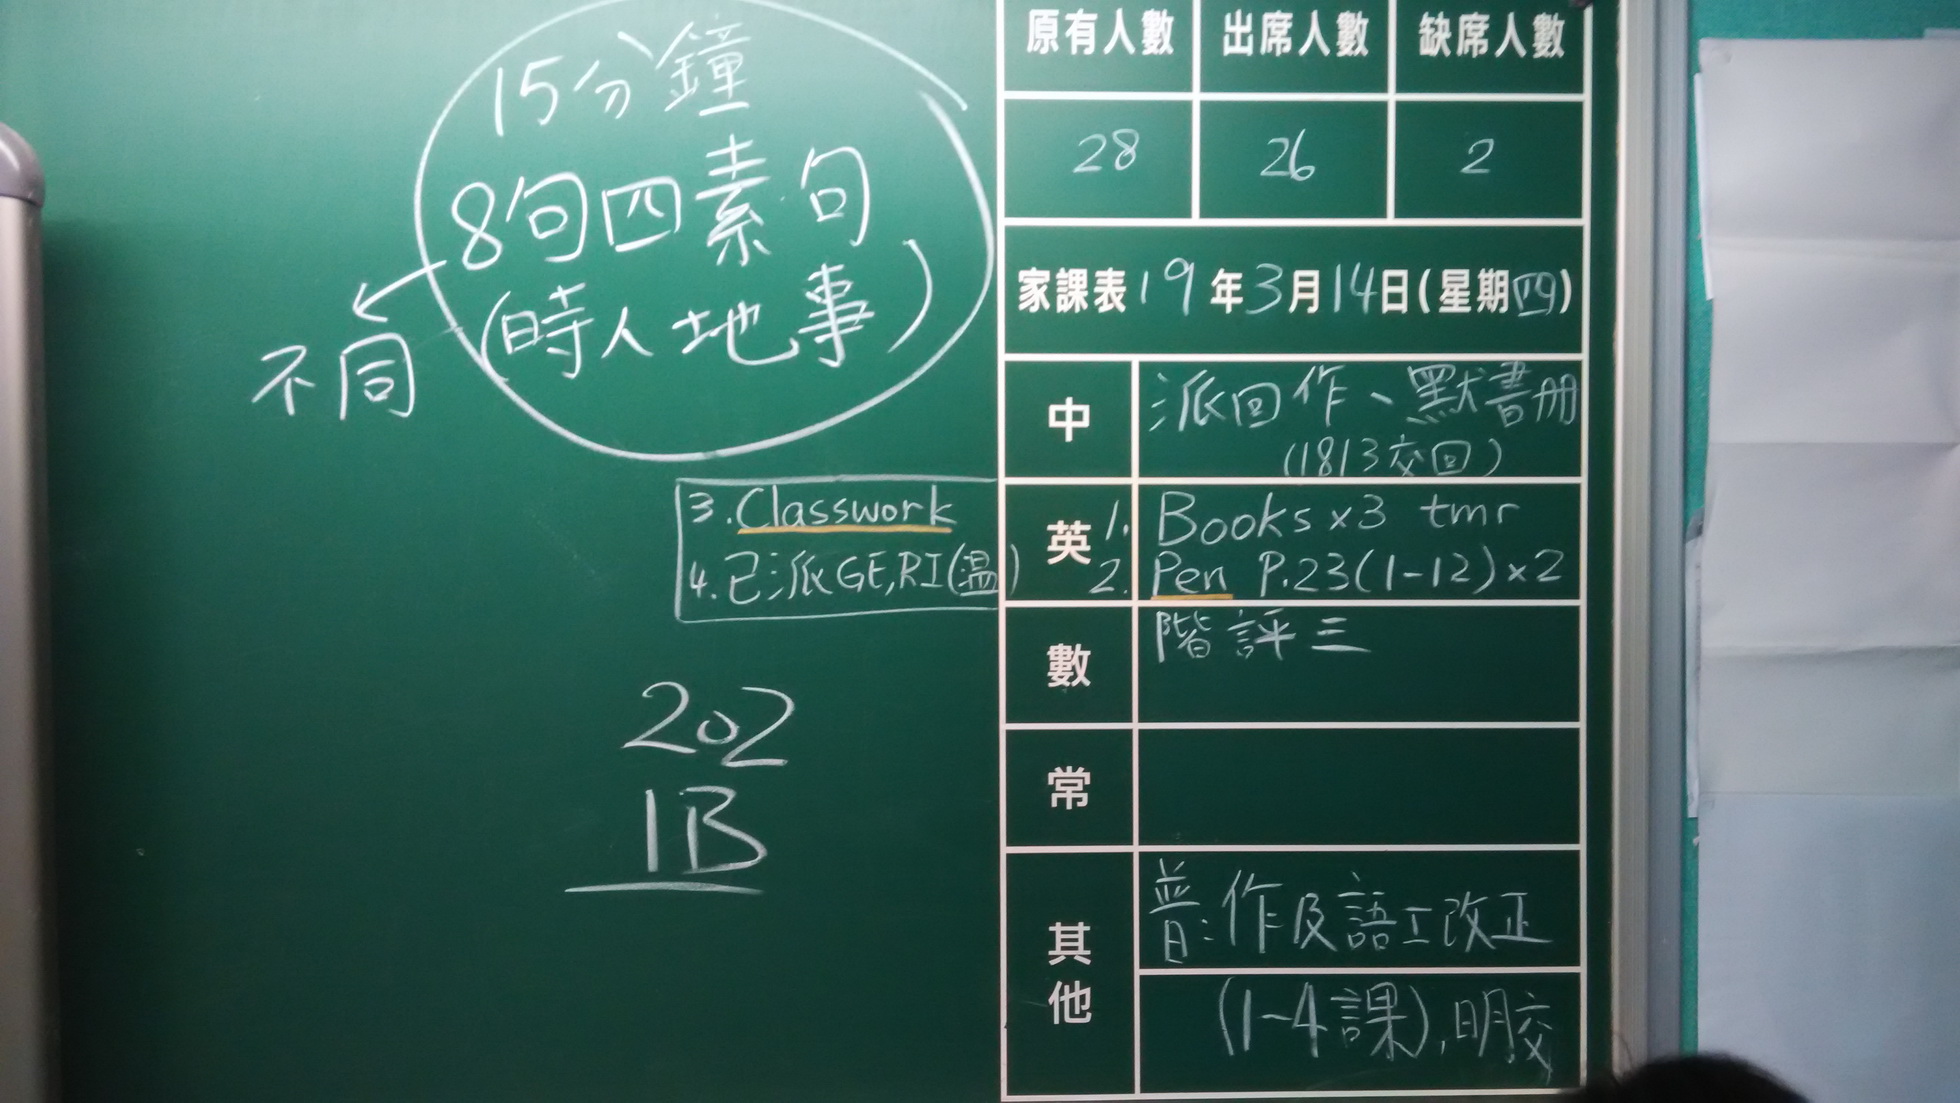 15分鐘
8句四素句
(時人地事)
不同
3. Classwork
4. 已派GE,RI(溫)
202
1B
原有人數 出席人數 缺席人數
28 26 2
家課表19年3月14日(星期四)
中 派回作、默書冊
(18/3交回)
英 1. Books x3 tmr
2. Pen P.23(1-12)x2
數 階評三
常
其他 普:作及語工改正
(1-4課),明交